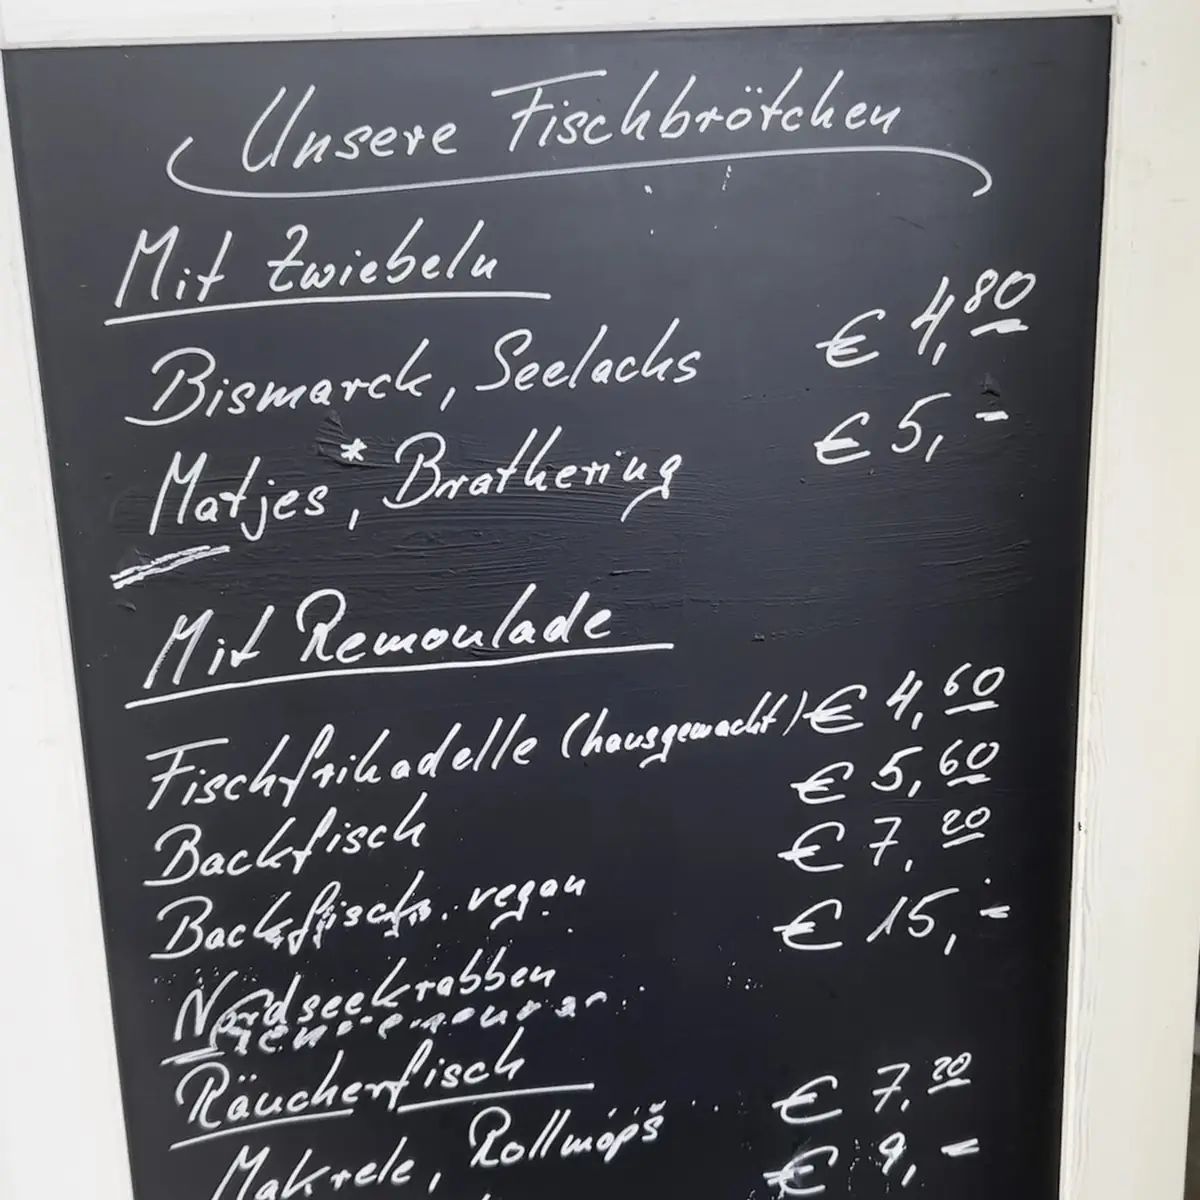 Unsere Fischbrötchen
Mit Zwiebeln
Bismarck, Seelachs € 4,80
Matjes*, Brathering € 5,-
Mit Remoulade
Fischfrikadelle (hausgemacht) € 4,60
Backfisch € 5,60
Backfisch vegan € 7,20
Nordseekrabben € 15,-
Räucherfisch
Makrele, Rollmops € 7,20
€ 9,-